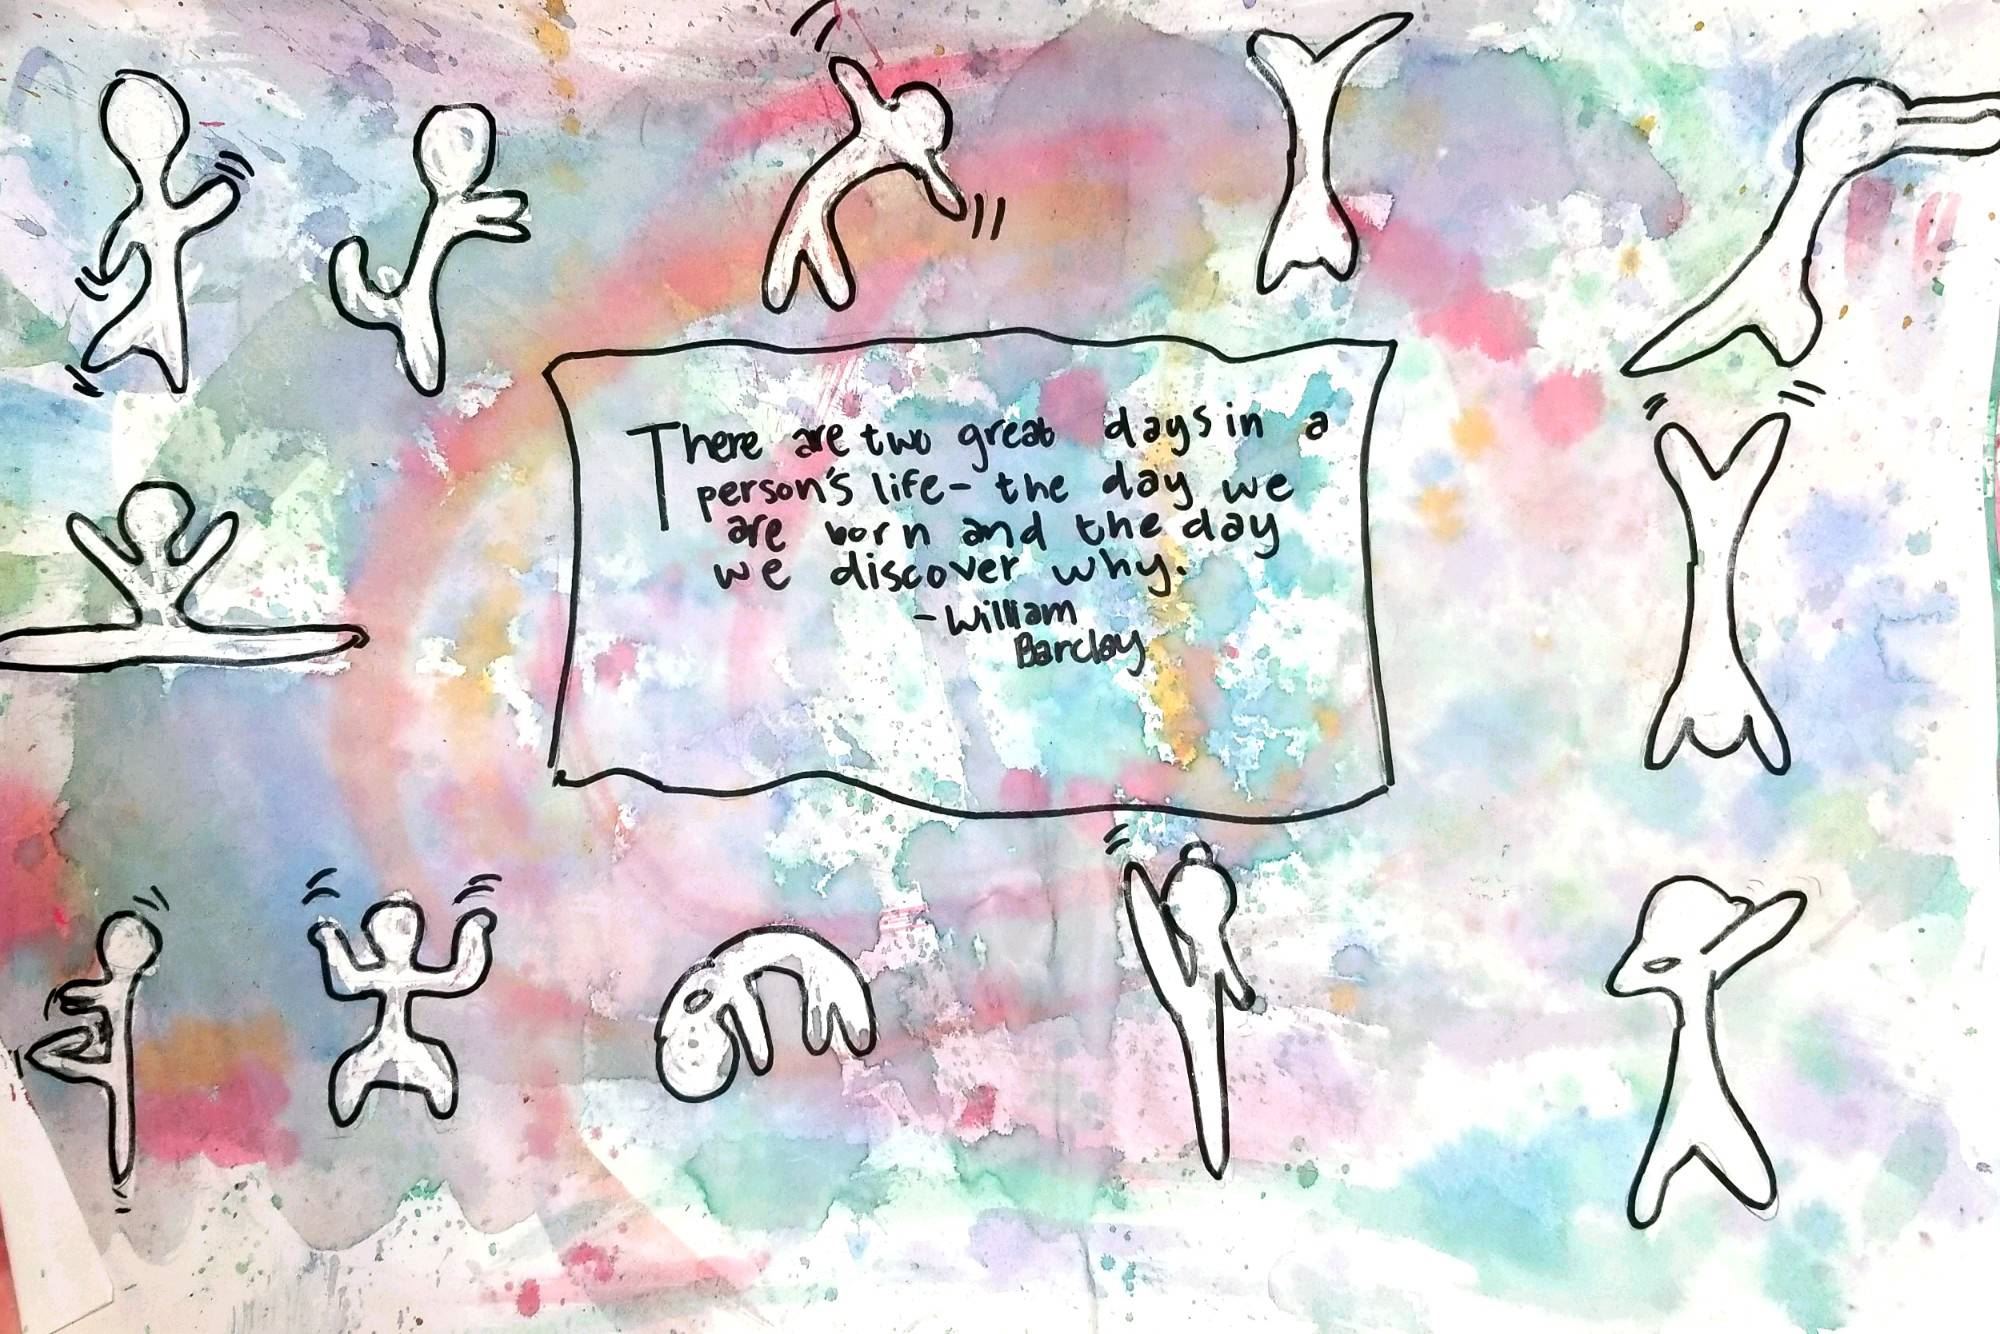 There are two great days in a
person's life- the day we
are born and the day
we discover why.
-William
Barclay